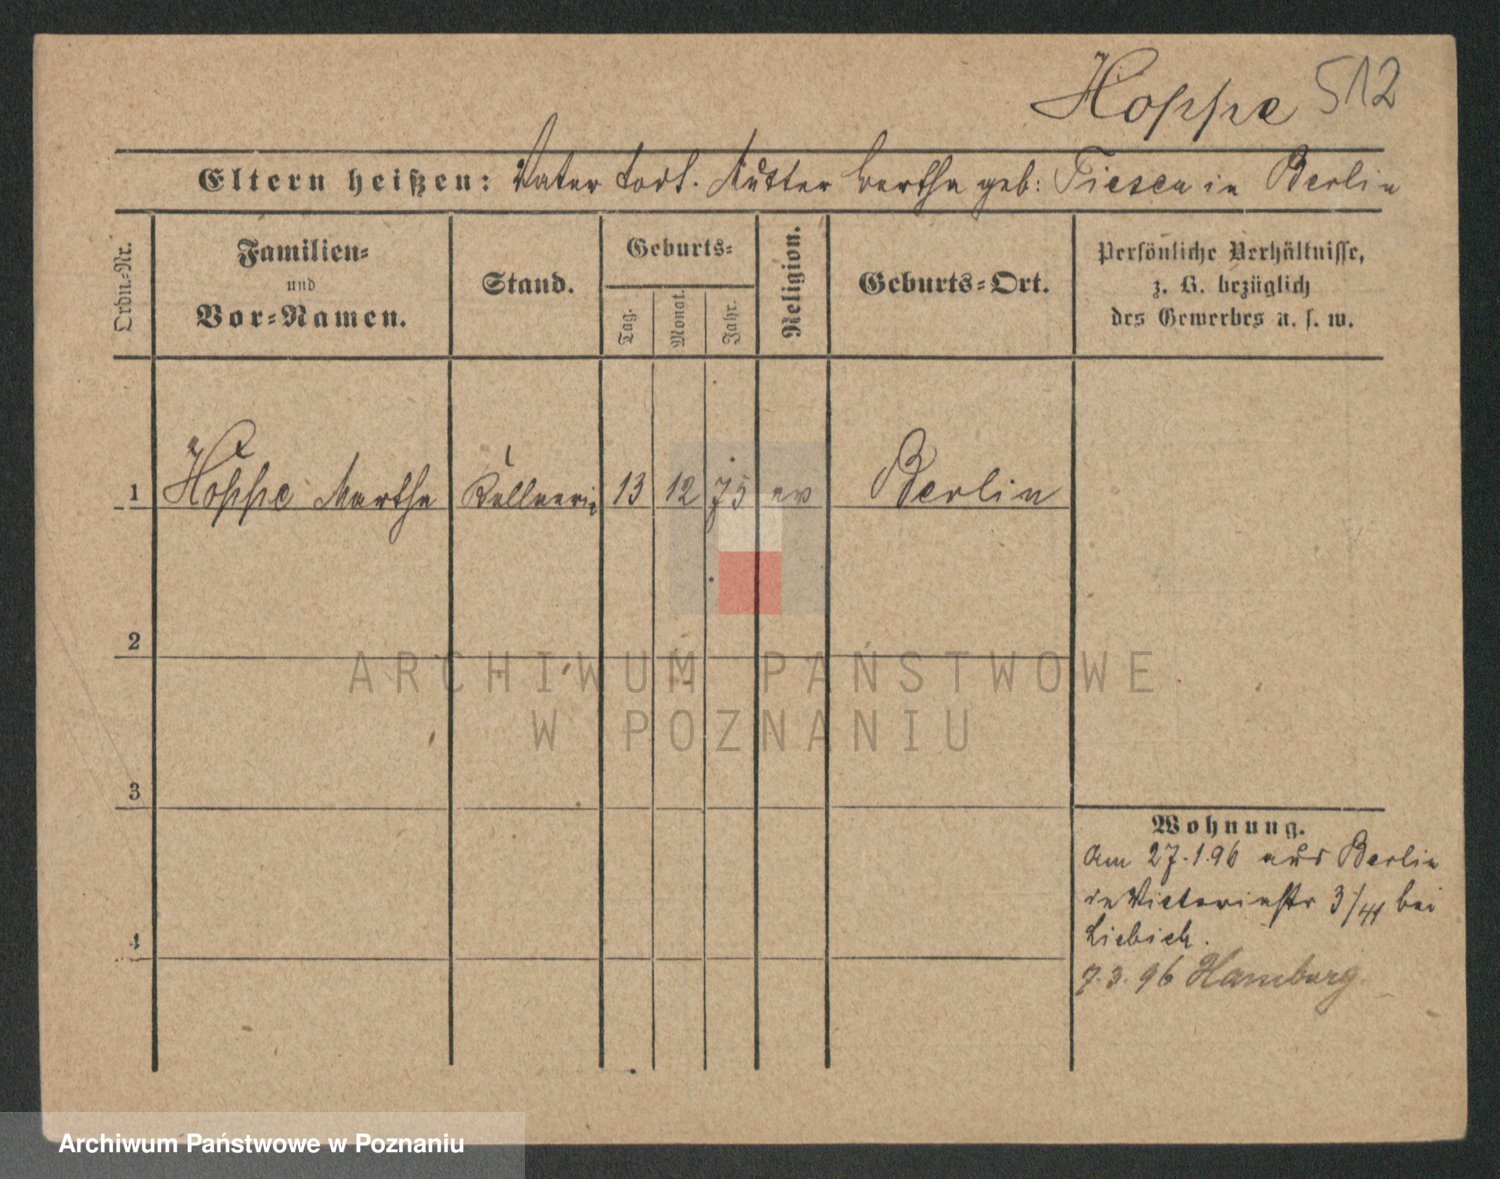 Hoppe 512
Eltern heißen: Vater todt. Mutter Bertha geb: in Berlin
Ordn.-Nr.
Familien-
und
Vor-Namen.
Stand.
Geburts-
Tag.
Monat.
Jahr.
Religion.
Geburts-Ort.
Persönliche Verhältnisse,
z. B. bezüglich
des Gewerbes u. s. w.
1 Hoppe Martha Kellnerin 13 12 75 ev Berlin
2
ARCHIWUM PAŃSTWOWE
W POZNANIU
3
Wohnung.
Am 27.1.96 aus Berlin
in Victoriastr 3/ bei
Liebich.
4
7.3.96 Hamburg.
Archiwum Państwowe w Poznaniu